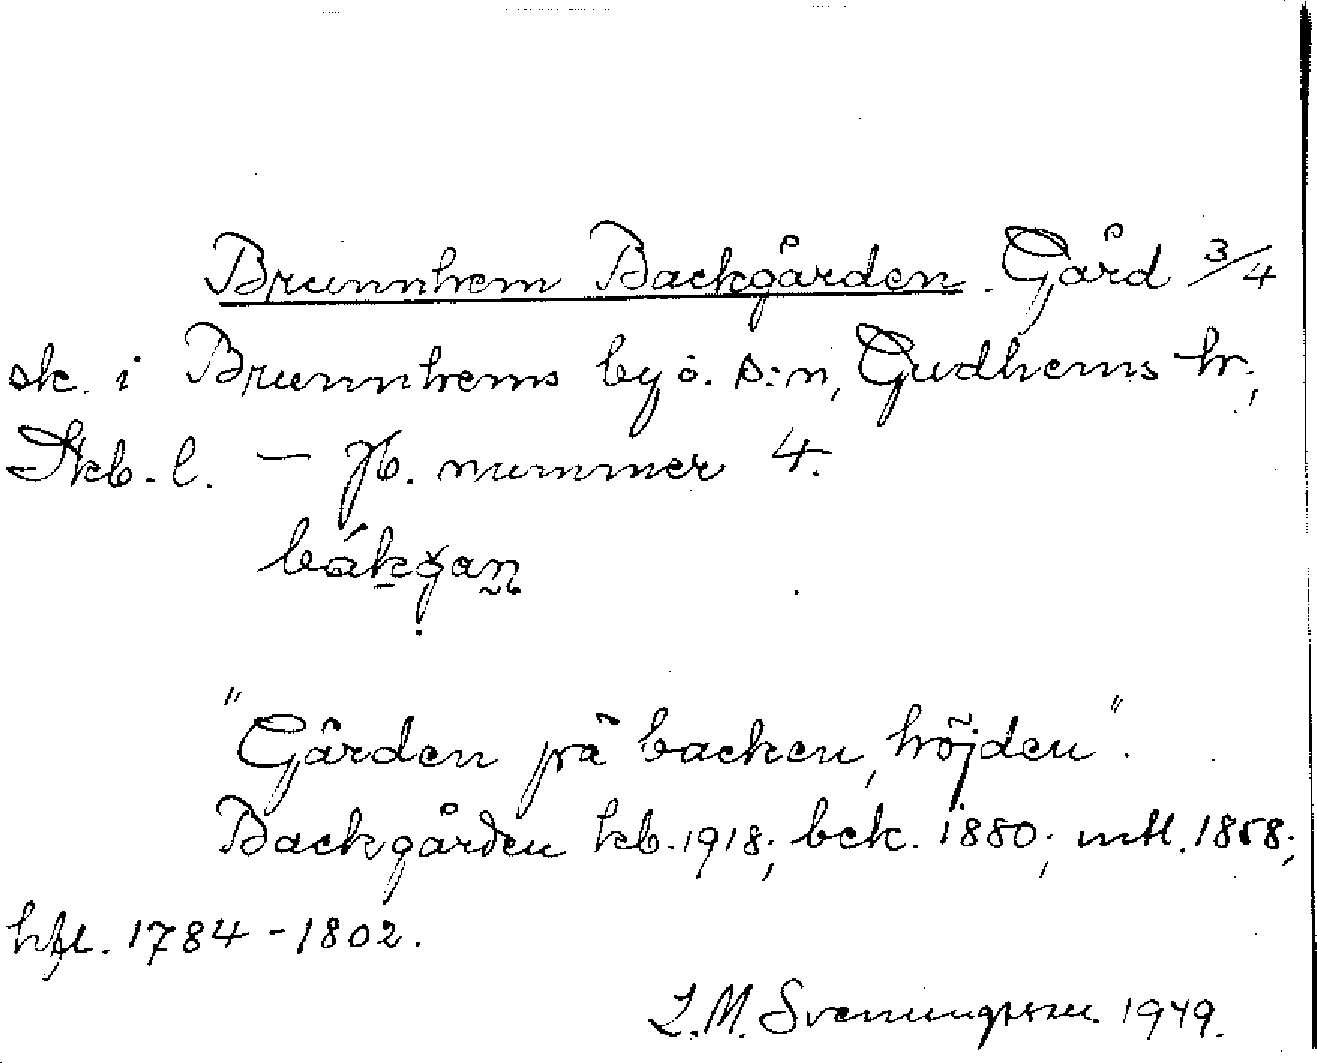 Brunnhem Backgården. Gård 3/4
sk. i Brunnhems by o. s:n, Gudhems hr;
Skb. l. — Jb. nummer 4.
bákgan
"Gården på backen, höjden".
Backgården kb. 1918; bck. 1880; mtl. 1858;
hfl. 1784-1802.
L.M. Svenungsson 1949.